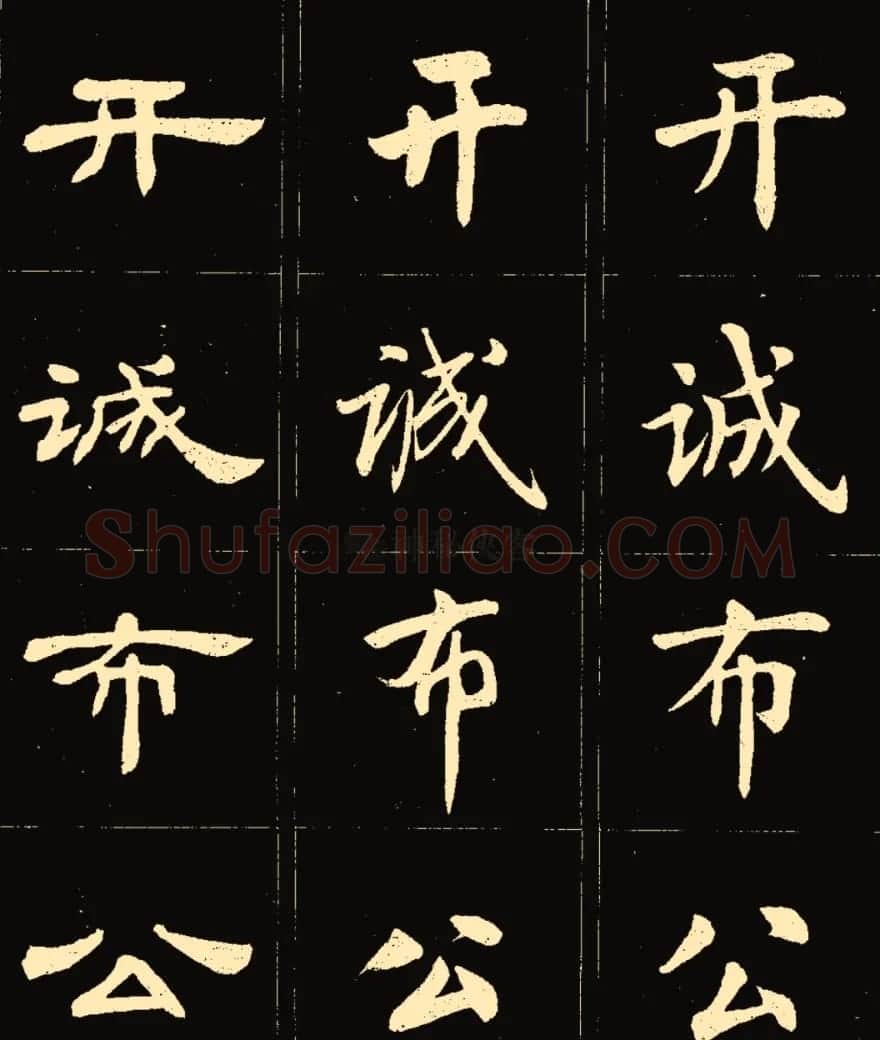 开 开 开
诚 诚 诚
Shufaziliao.COM
布 布 布
公 公 公